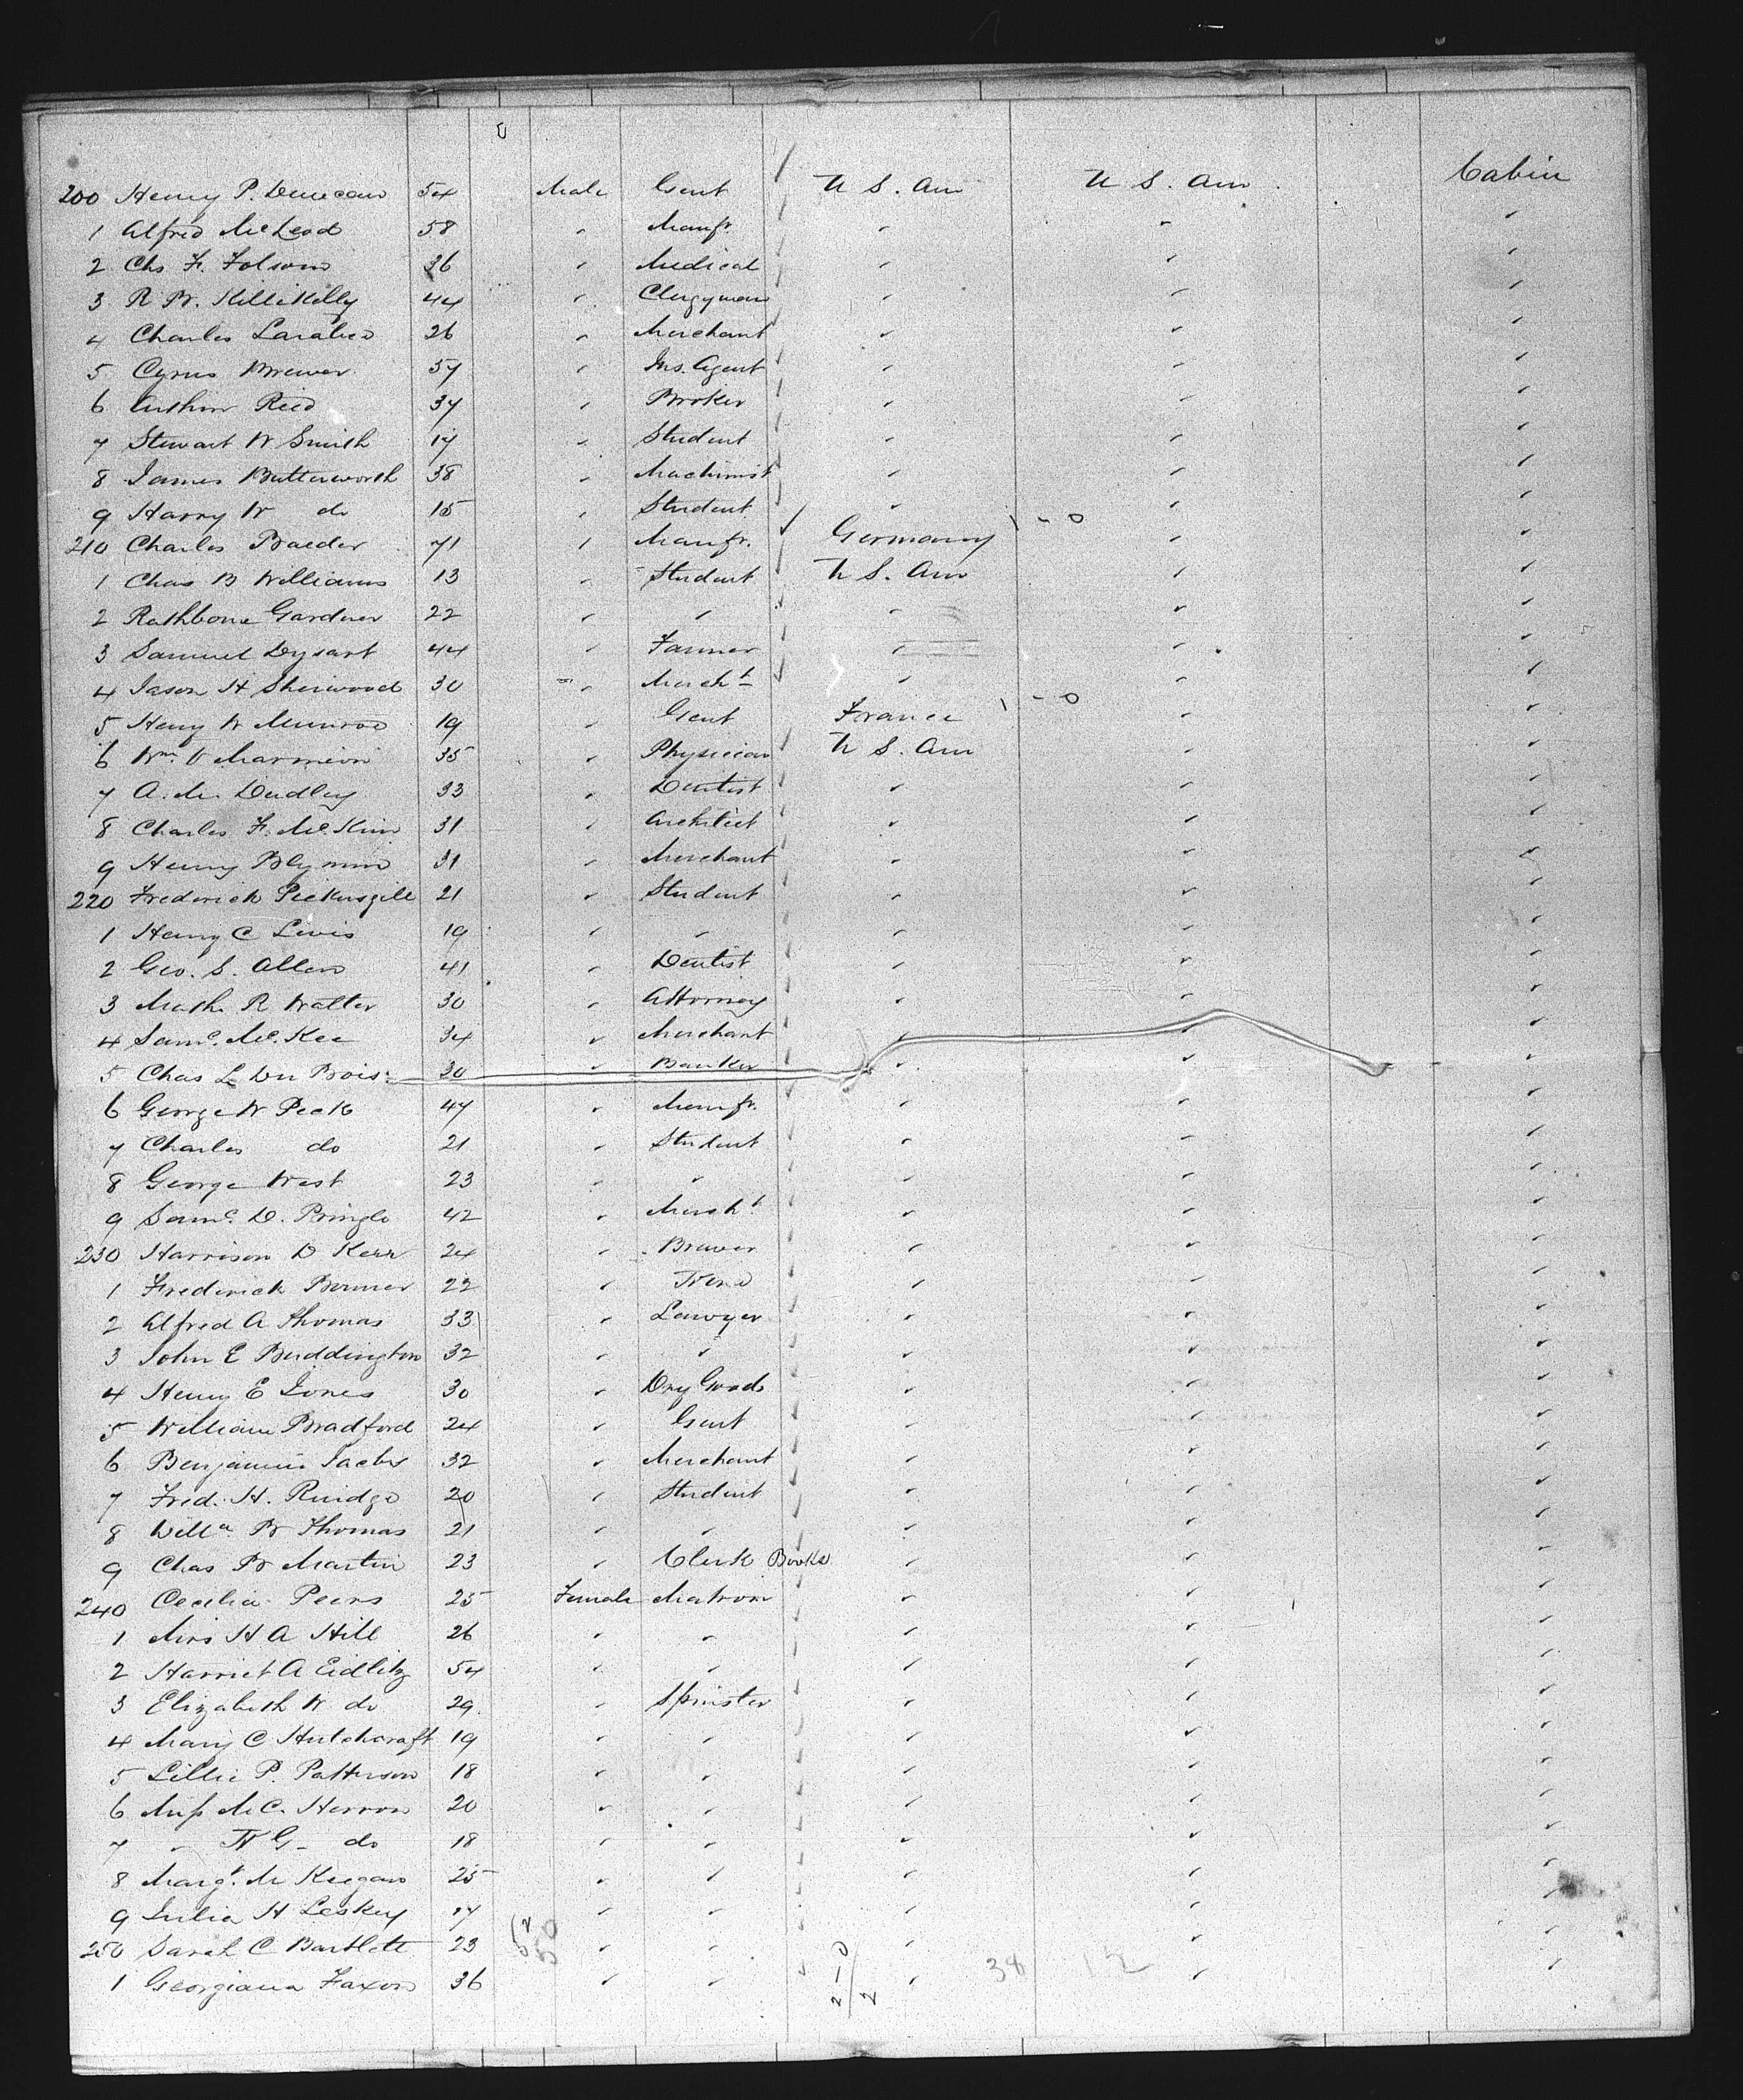 200 Henry P. Duncan 54 Male Gent U S. Am U S. Am Cabin
1 Alfred McLeod 58 " Manfr. " " "
2 Chs. F. Folsom 36 " Medical " " "
3 R. W. Killikelly 44 " Clergyman " " "
4 Charles Larabee 26 " Merchant " " "
5 Cyrus Brewer 57 " Ins. Agent " " "
6 Arthur Reed 37 " Broker " " "
7 Stewart W Smith 17 " Student " " "
8 James Butterworth 38 " Machinist " " "
9 Harry W do 15 " Student " " "
210 Charles Baeder 71 " Manfr. Germany 1 - 0 " "
1 Chas B Williams 13 " Student U S. Am " "
2 Rathbone Gardner 22 " " " " "
3 Samuel Dysart 44 " Farmer " " "
4 Jason H Sherwood 30 " Merch't " " "
5 Henry W Munroe 19 " Gent France 1 - 0 " "
6 Wm. V Marmion 35 " Physician U S. Am " "
7 A. M. Dudley 33 " Dentist " " "
8 Charles F. McKim 31 " Architect " " "
9 Henry Blynn 31 " Merchant " " "
220 Frederick Pickersgill 21 " Student " " "
1 Henry C Lewis 19 " " " " "
2 Geo. S. Allen 41 " Dentist " " "
3 Math. R Walter 30 " Attorney " " "
4 Saml. McKee 34 " Merchant " " "
5 Chas L Du Bois 30 " Banker " " "
6 George W Peck 47 " Manfr. " " "
7 Charles do 21 " Student " " "
8 George West 23 " " " " "
9 Saml. D. Pringle 42 " Mercht " " "
230 Harrison D Kerr 24 " Brewer " " "
1 Frederick Bonner 22 " None " " "
2 Alfred A Thomas 33 " Lawyer " " "
3 John E Buddington 32 " " " " "
4 Henry E Jones 30 " Dry Goods " " "
5 William Bradford 24 " Gent " " "
6 Benjamin Jacobs 32 " Merchant " " "
7 Fred. H. Rindge 20 " Student " " "
8 Willm B Thomas 21 " " " " "
9 Chas B Martin 23 " Clerk Books " " "
240 Cecilia Peers 25 Female Matron " " "
1 Mrs H A Hill 26 " " " " "
2 Harriet A Eidlitz 54 " " " " "
3 Elizabeth W do 29 " Spinster " " "
4 Mary C Hutchcraft 19 " " " " "
5 Lillie P. Patterson 18 " " " " "
6 Miss M C. Herron 20 " " " " "
7 " do 18 " " " " "
8 Margt. M Keegan 25 " " " " "
9 Julia H Leskey 17 " " " " "
250 Sarah C Bartlett 23 " " " " "
1 Georgiana Faxon 36 " " " 38 12 " "